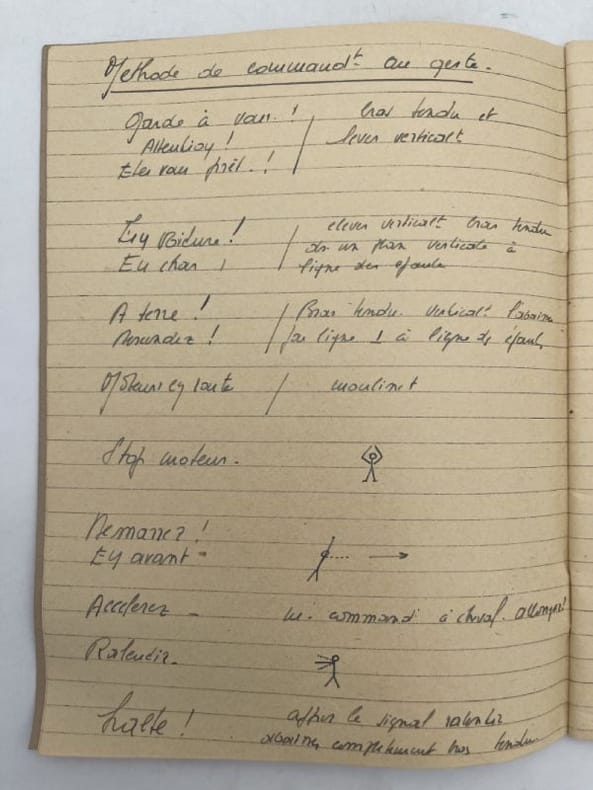 Methode de commandt au geste.
Garde à vous ! / bras tendu et
Attention ! lever verticalt
Etes vous prêt !
En voiture ! / elever verticalt bras tendu
En char ! ds un plan verticale à
ligne des epaule
A terre ! / Bras tendu verticalt l'abaisser
Descendez ! par ligne ⊥ à ligne ds épaule
Moteurs en route / moulinet
Stop moteur.
Demarrez !
En avant -
Accelerez - commandt à cheval allongez !
Ralentir.
halte ! après le signal ralentir
abaisser completement bras tendu